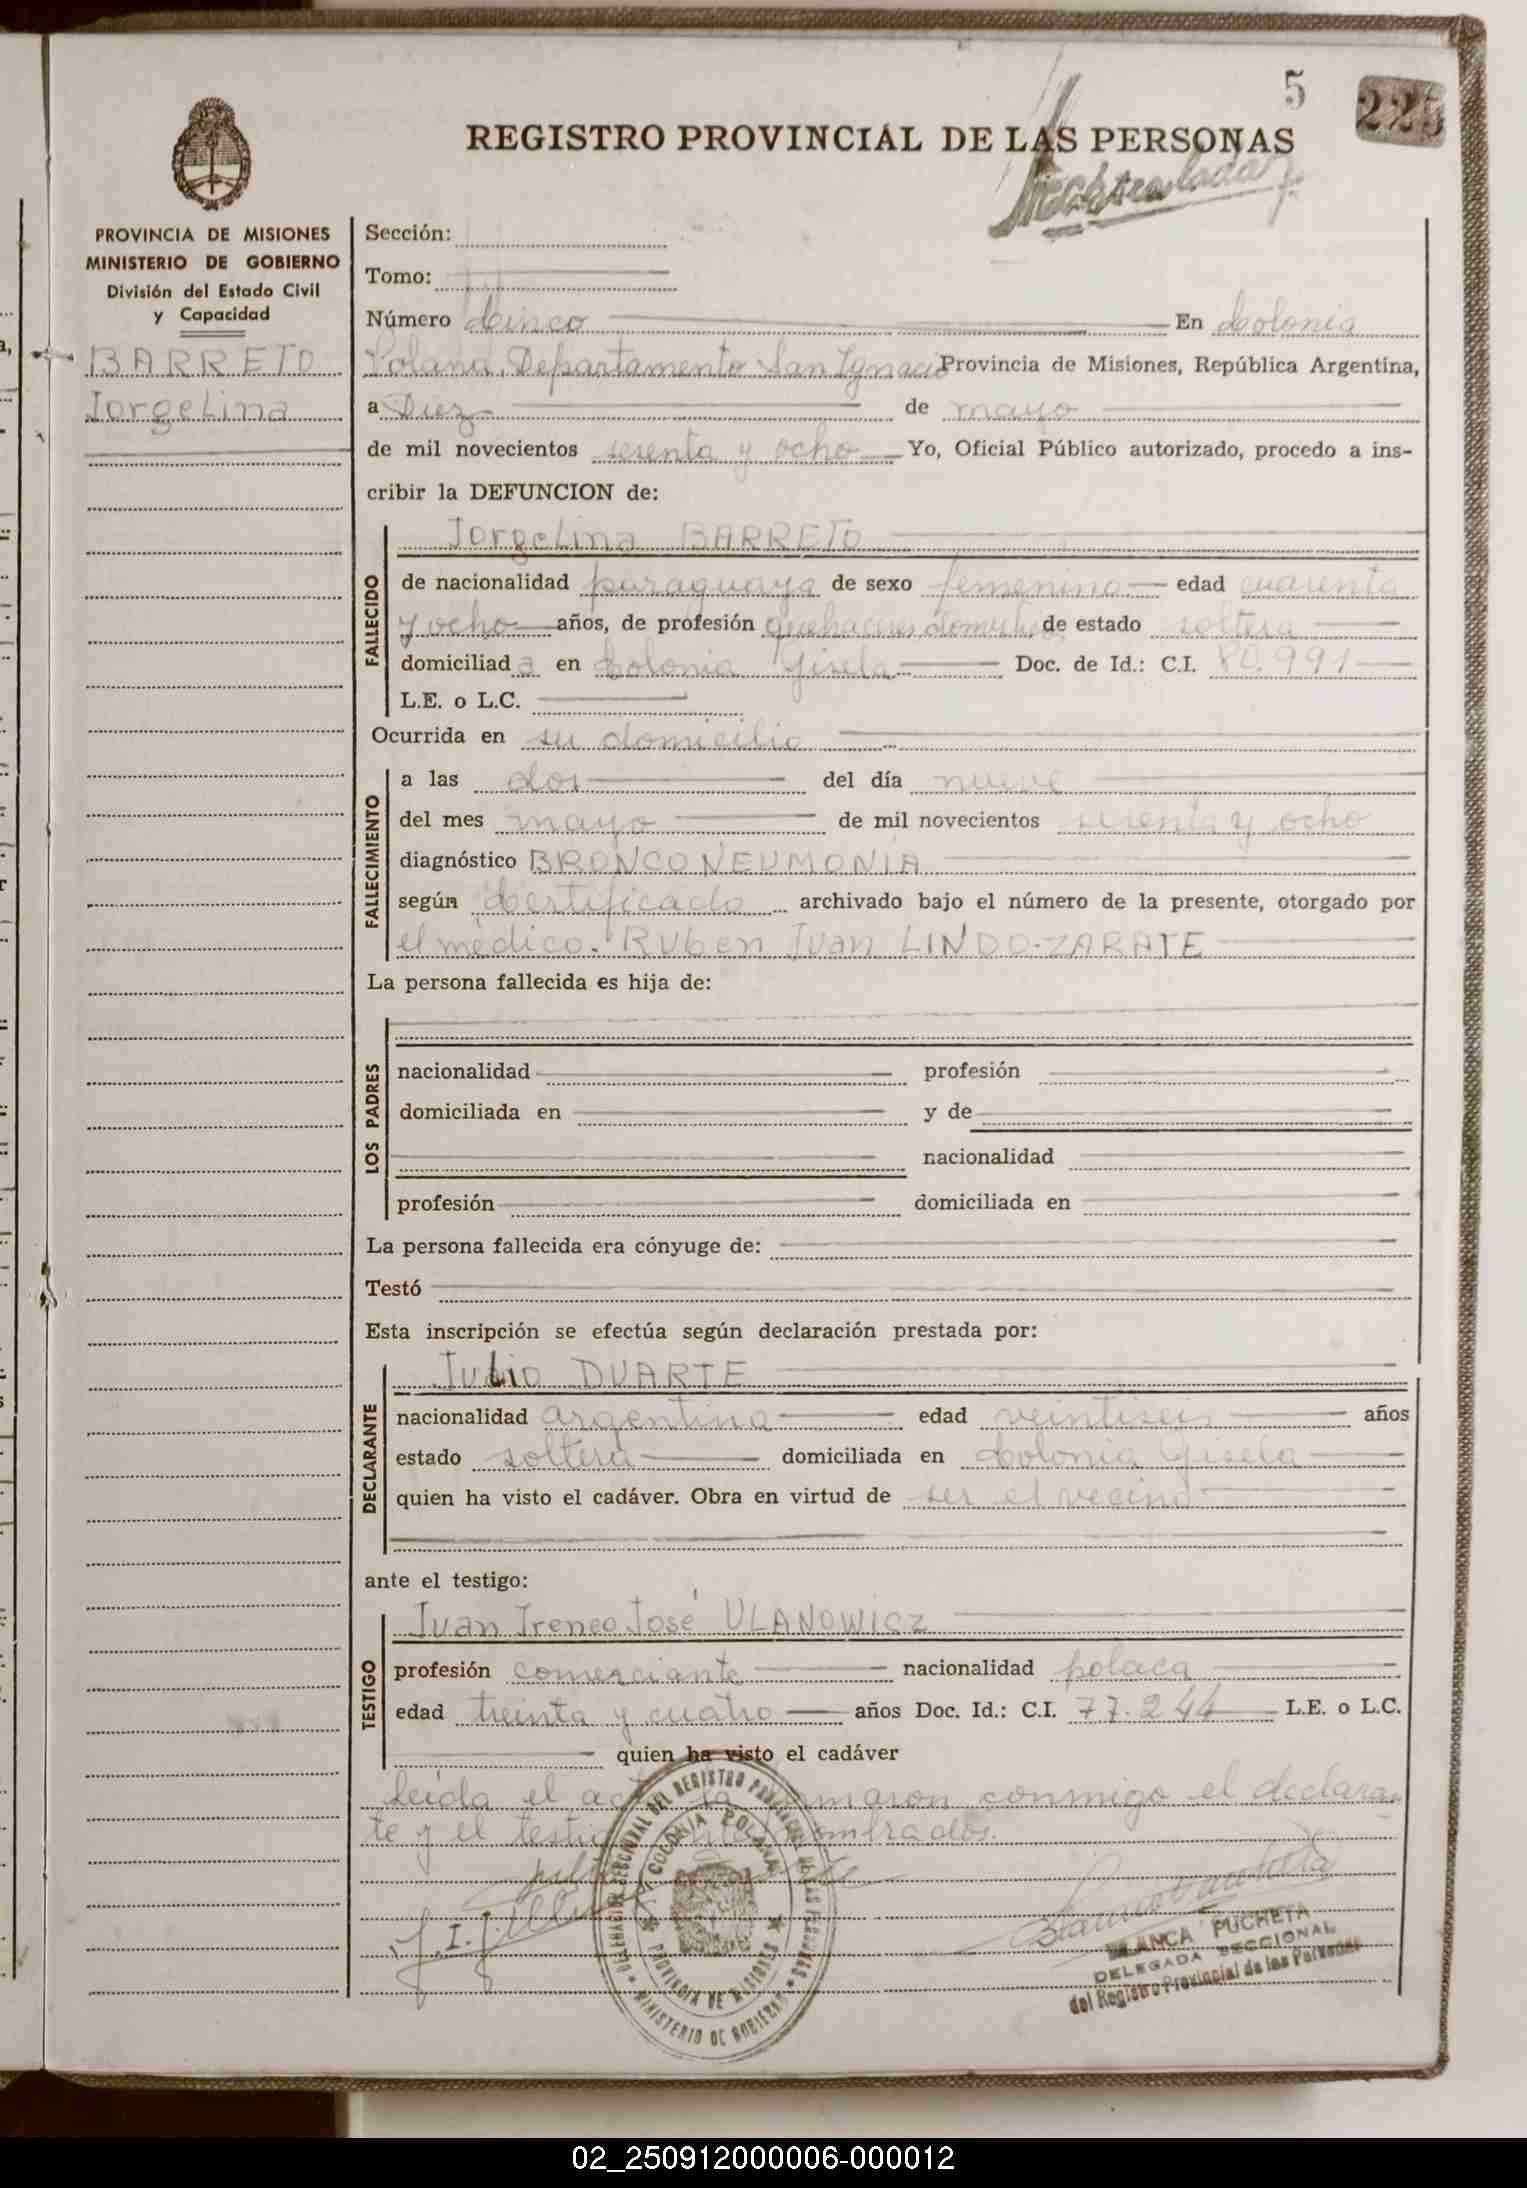 5
225
REGISTRO PROVINCIAL DE LAS PERSONAS
PROVINCIA DE MISIONES
MINISTERIO DE GOBIERNO
División del Estado Civil
y Capacidad
BARRETO
Jorgelina
Sección:
Tomo:
Número Cinco En Colonia
Polana, Departamento San Ignacio Provincia de Misiones, República Argentina,
a Diez de mayo
de mil novecientos sesenta y ocho Yo, Oficial Público autorizado, procedo a ins-
cribir la DEFUNCION de:
FALLECIDO
Jorgelina BARRETO
de nacionalidad paraguaya de sexo femenino edad cuarenta
y ocho años, de profesión quehaceres domésticos de estado soltera
domiciliada en Colonia Gisela Doc. de Id.: C.I. 80.991
L.E. o L.C.
Ocurrida en su domicilio
FALLECIMIENTO
a las dos del día nueve
del mes mayo de mil novecientos sesenta y ocho
diagnóstico BRONCONEUMONIA
según Certificado archivado bajo el número de la presente, otorgado por
el médico. Ruben Juan LINDO-ZARATE
La persona fallecida es hija de:
LOS PADRES
nacionalidad profesión
domiciliada en y de
nacionalidad
profesión domiciliada en
La persona fallecida era cónyuge de:
Testó
Esta inscripción se efectúa según declaración prestada por:
DECLARANTE
Julio DUARTE
nacionalidad argentina edad veintiseis años
estado soltera domiciliada en Colonia Gisela
quien ha visto el cadáver. Obra en virtud de ser el vecino
ante el testigo:
TESTIGO
Juan Ireneo José ULANOWICZ
profesión comerciante nacionalidad polaca
edad treinta y cuatro años Doc. Id.: C.I. 77.244 L.E. o L.C.
quien ha visto el cadáver
Leída el acta la firmaron conmigo el declaran-
te y el testigo nombrados.
DELEGACION SECCIONAL DEL REGISTRO PROVINCIAL DE LAS PERSONAS
COLONIA POLANA
PROVINCIA DE MISIONES
MINISTERIO DE GOBIERNO
BLANCA PUCHETA
DELEGADA SECCIONAL
del Registro Provincial de las Personas
02_250912000006-000012